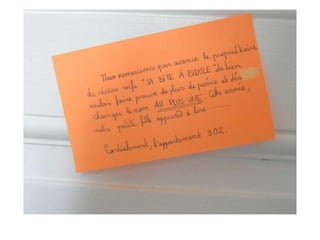 Nous remercions par avance le propriétaire
du réseau wifi "LA BITE À BIDULE" de bien
vouloir faire preuve de plus de poésie et d'en
changer le nom AU PLUS VITE. Cette année,
notre petite fille apprend à lire ..........
Cordialement, l'appartement 302.